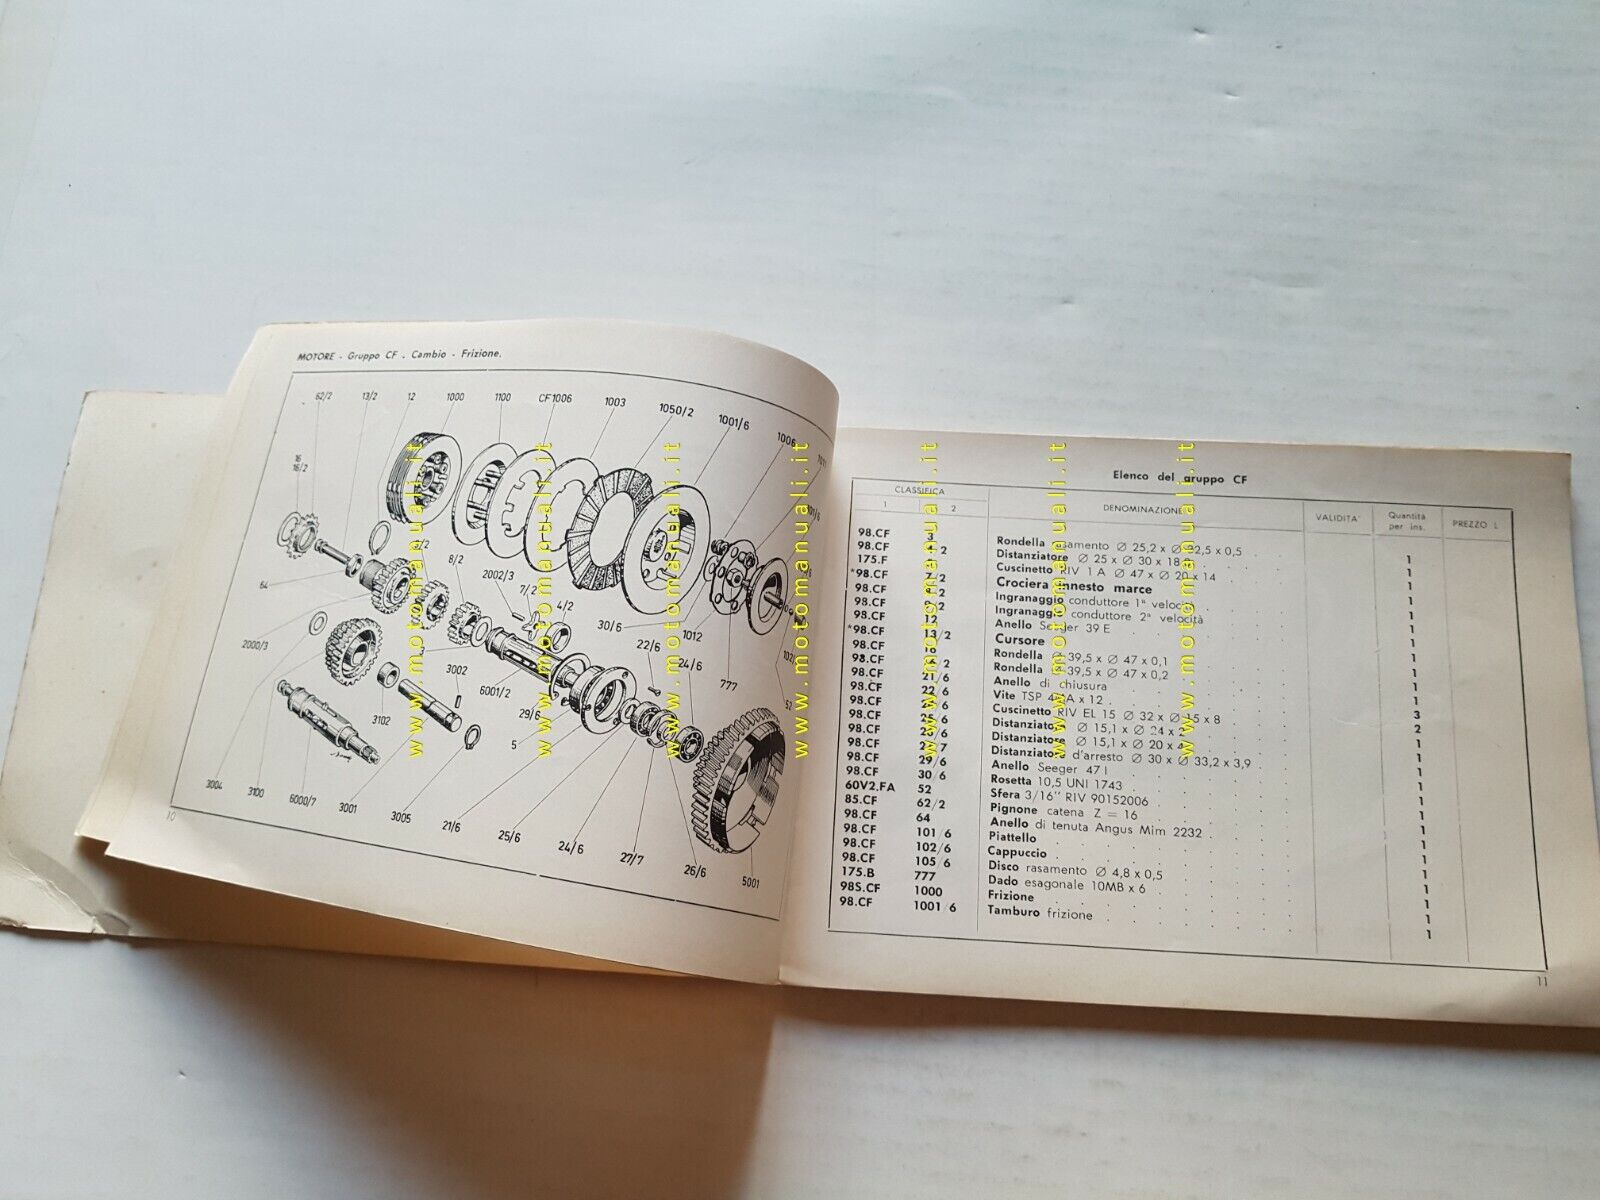 MOTORE - Gruppo CF - Cambio - Frizione.
62/2 13/2 12 1000 1100 CF1006 1003 1050/2 1001/6 1006
16
16/2
8/2
2002/3
7/2
4/2
64
30/6
1012
22/6
24/6
777
2000/3
3002
6001/2
29/6
3102
5
3004 3100 6000/7 3001 3005 21/6 25/6 24/6 27/7 26/6 5001
10
Elenco del gruppo CF
CLASSIFICA
1 2 DENOMINAZIONE VALIDITA' Quantità per ins. PREZZO L
98.CF 3 Rondella rasamento Ø 25,2 x Ø 32,5 x 0,5 1
98.CF 4/2 Distanziatore Ø 25 x Ø 30 x 18 1
175.F Cuscinetto RIV 1 A Ø 47 x Ø 20 x 14 1
*98.CF 7/2 Crociera innesto marce 1
98.CF Ingranaggio conduttore 1ª velocità 1
98.CF Ingranaggio conduttore 2ª velocità 1
98.CF 12 Anello Seeger 39 E 1
*98.CF 13/2 Cursore 1
98.CF 16 Rondella Ø 39,5 x Ø 47 x 0,1 1
98.CF 16/2 Rondella Ø 39,5 x Ø 47 x 0,2 1
98.CF 21/6 Anello di chiusura 1
98.CF 22/6 Vite TSP x 12 3
98.CF 24/6 Cuscinetto RIV EL 15 Ø 32 x Ø 15 x 8 2
98.CF 25/6 Distanziatore Ø 15,1 x Ø 24 x 2 1
98.CF 26/6 Distanziatore Ø 15,1 x Ø 20 x 4 1
98.CF 27/7 Distanziatore d'arresto Ø 30 x Ø 33,2 x 3,9 1
98.CF 29/6 Anello Seeger 47 I 1
98.CF 30/6 Rosetta 10,5 UNI 1743 1
60V2.FA 52 Sfera 3/16'' RIV 90152006 1
85.CF 62/2 Pignone catena Z = 16 1
98.CF 64 Anello di tenuta Angus Mim 2232 1
98.CF 101/6 Piattello 1
98.CF 102/6 Cappuccio 1
98.CF 105/6 Disco rasamento Ø 4,8 x 0,5 1
175.B 777 Dado esagonale 10MB x 6 1
98S.CF 1000 Frizione 1
98.CF 1001/6 Tamburo frizione 1
11
www.motomanuali.it
www.motomanuali.it
www.motomanuali.it
www.motomanuali.it
www.motomanuali.it
www.motomanuali.it
www.motomanuali.it